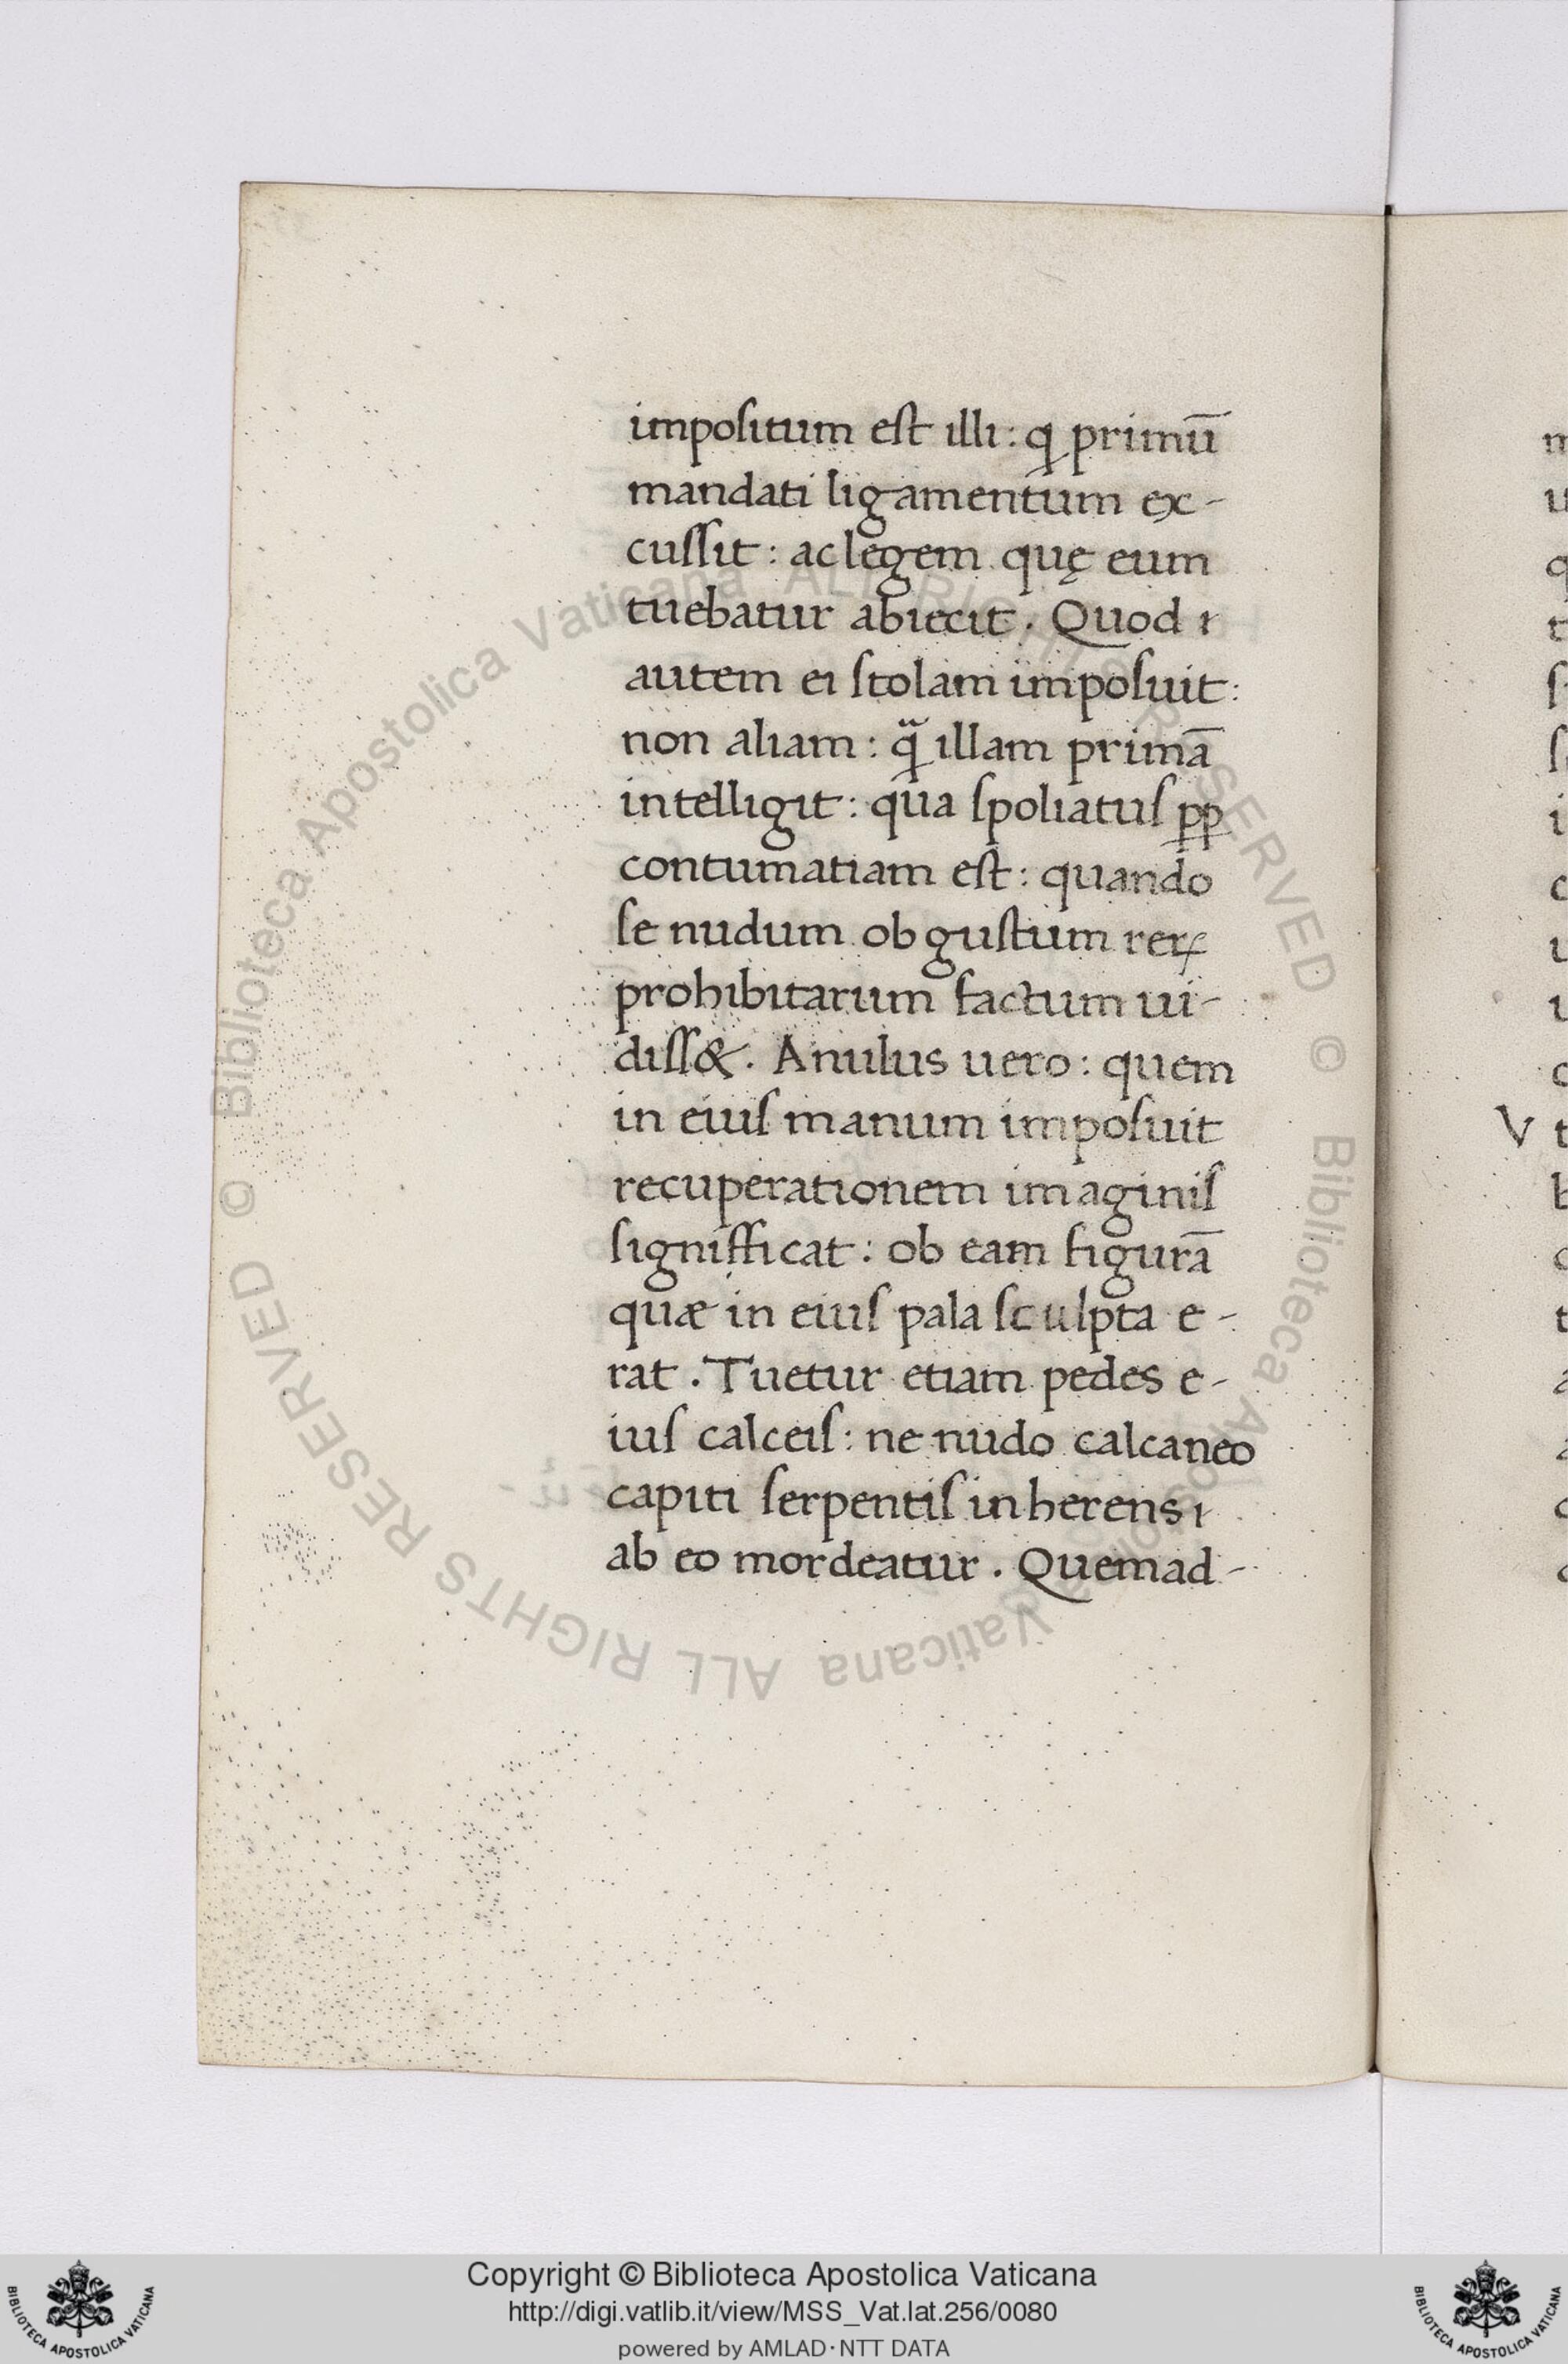 impositum est illi: ꝙ primū
mandati ligamentum ex-
cussit: ac legem quę eum
tuebatur abiecit. Quod
autem ei stolam imposuit:
non aliam: q̃ illam primā
intelligit: qua spoliatus ꝓp
contumatiam est: quando
se nudum ob gustum reꝝ
prohibitarum factum ui-
diss&. Anulus uero: quem
in eius manum imposuit
recuperationem imaginis
significat: ob eam figurā
quæ in eius pala sculpta e-
rat. Tuetur etiam pedes e-
ius calceis: ne nudo calcaneo
capiti serpentis inherens
ab eo mordeatur. Quemad-
V
© Biblioteca Apostolica Vaticana ALL RIGHTS RESERVED © Biblioteca Apostolica Vaticana ALL RIGHTS RESERVED
Copyright © Biblioteca Apostolica Vaticana
http://digi.vatlib.it/view/MSS_Vat.lat.256/0080
powered by AMLAD·NTT DATA
BIBLIOTECA APOSTOLICA VATICANA
BIBLIOTECA APOSTOLICA VATICANA